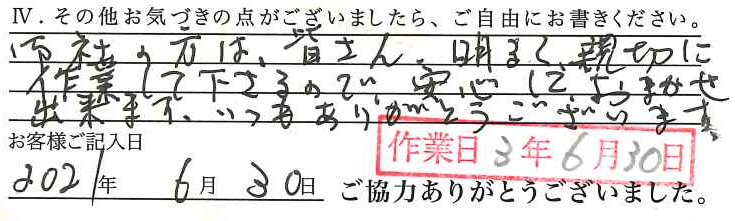 Ⅳ．その他お気づきの点がございましたら、ご自由にお書きください。
両社の方は、皆さん、明るく、親切に
作業して下さるので、安心して、おまかせ
出来ます、いつもありがとうございます。
お客様ご記入日
作業日 3年6月30日
2021年 6月 30日 ご協力ありがとうございました。